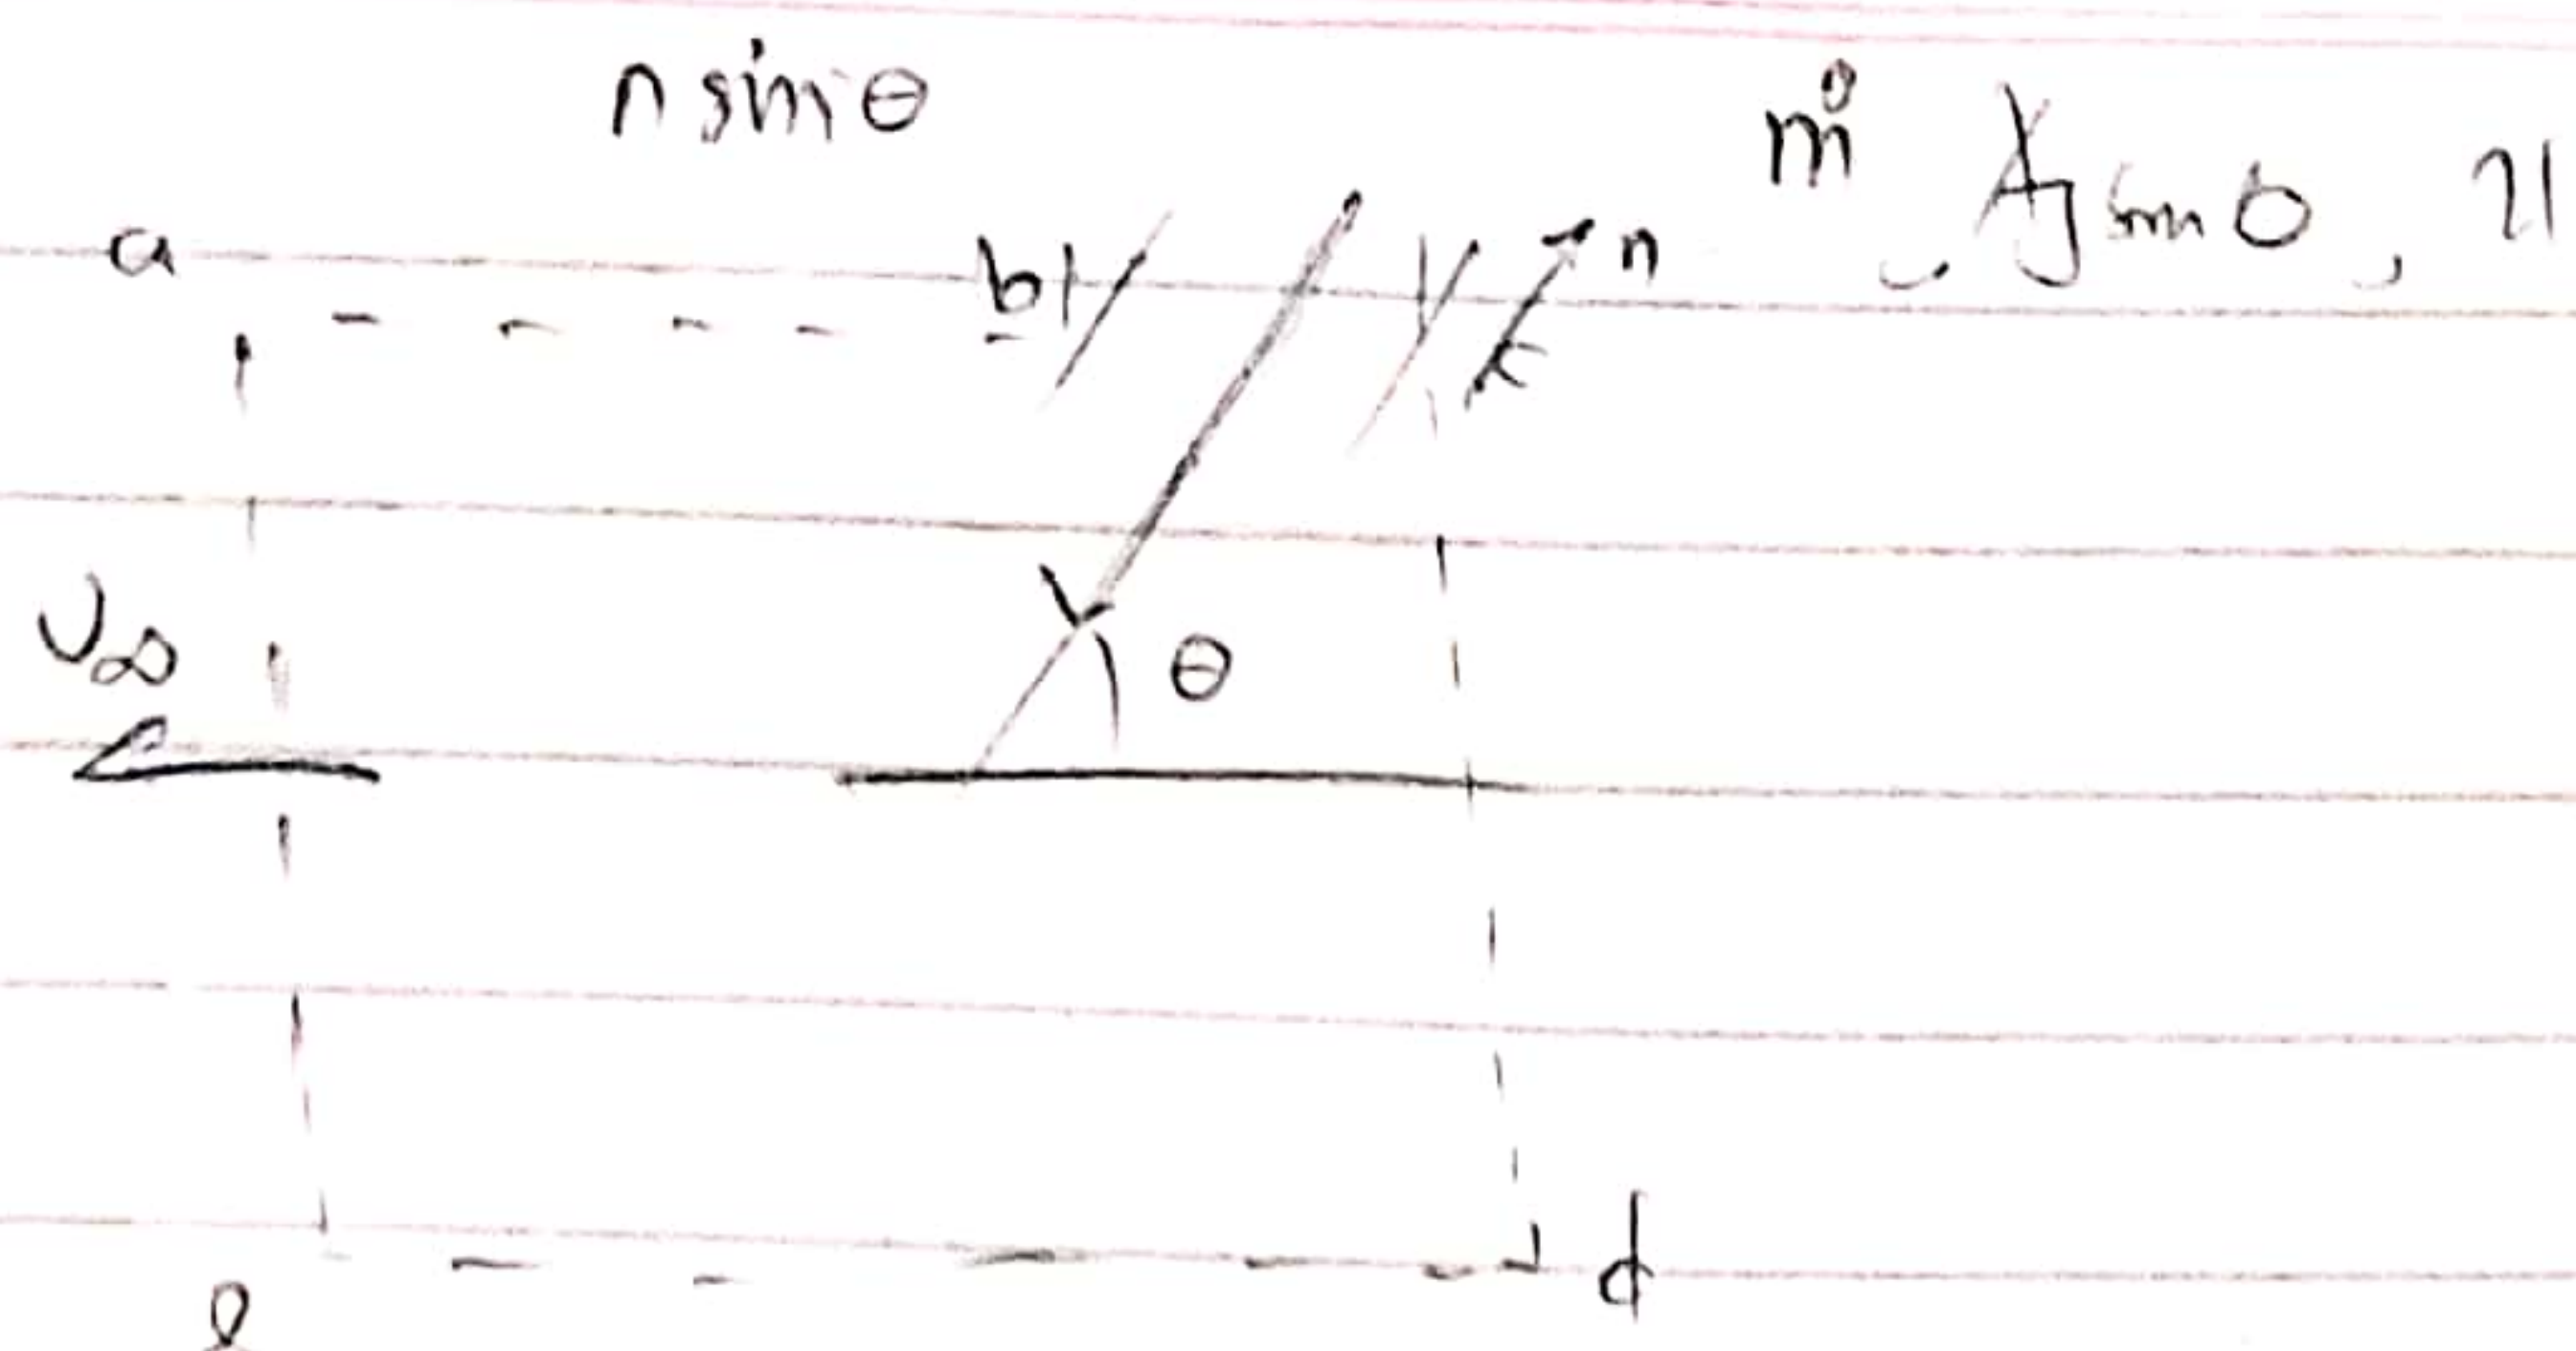 n sinθ
ṁ, Aj sinθ, η
a
b
n
U∞
θ
d
e